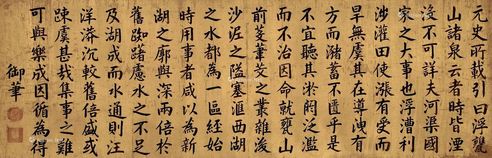 元史所載引白浮甕
山諸泉云者時皆湮
沒不可詳夫河渠國
家之大事也浮漕利
涉灌田使漲有受而
旱無虞其在導洩有
方而瀦蓄不匱乎是
不宜聽其淤閼泛濫
而不治因命就甕山
前芟葦茭之叢雜浚
沙泥之隘塞匯西湖
之水都為一區經始
時用事者咸以為新
湖之廓與深兩倍於
舊踟躕慮水之不足
及湖成而水通則汪
洋漭沆較舊倍盛或
疎虞甚哉集事之難
可與樂成因循為得
御筆